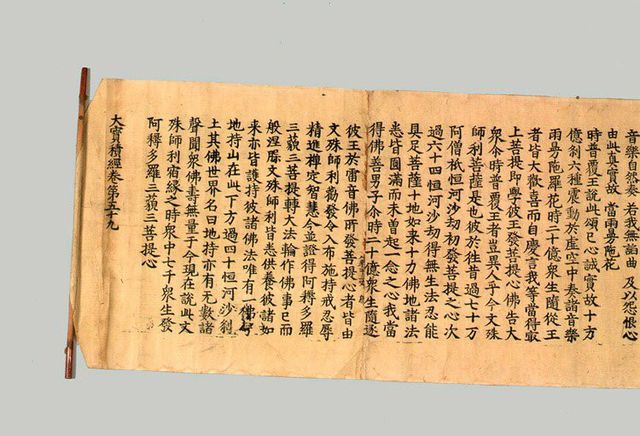 音樂自然奏 若我無諂曲 及以怨恨心
由此真實故 當雨曼陁花
時普覆王說此頌已以誠實故十方
億剎六種震動於虛空中奏諸音樂
雨曼陁羅花時二十億衆生隨從王
者皆大歡喜而自慶言我等當得㝡
上菩提即學彼王發菩提心佛告大
衆尒時普覆王者豈異人乎今文殊
師利菩薩是也彼於往昔過七十万
阿僧祇恒河沙劫初發菩提之心次
過六十四恒河沙劫得無生法忍能
具足菩薩十地如來十力佛地諸法
悉皆圓滿而未曾起一念之心我當
得佛善男子尒時二十億衆生隨逐
彼王於雷音佛所發菩提心者皆由
文殊師利勸發令入布施持戒忍辱
精進禪定智慧今並證得阿耨多羅
三藐三菩提轉大法輪作佛事已而
般涅槃文殊師利皆悉供養彼諸如
來亦皆護持彼諸佛法唯有一佛号
地持山在此下方過四十恒河沙剎
土其佛世界名曰地持亦有無數諸
聲聞衆佛壽無量于今現在說此文
殊師利宿緣之時衆中七千衆生發
阿耨多羅三藐三菩提心
大寶積經卷第五十九